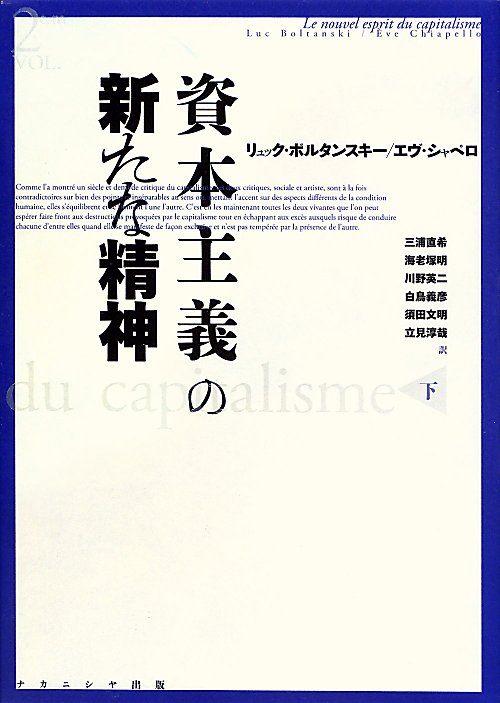 Le nouvel esprit du capitalisme
Luc Boltanski / Ève Chiapello
2
VOL.
資本主義の
新たな精神
リュック・ボルタンスキー/エヴ・シャペロ
Comme l'a montré un siècle et demi de critique du capitalisme, les deux critiques, sociale et artiste, sont à la fois
contradictoires sur bien des points et inséparables au sens où, mettant l'accent sur des aspects différents de la condition
humaine, elles s'équilibrent et se limitent l'une l'autre. C'est en les maintenant toutes les deux vivantes que l'on peut
espérer faire front aux destructions provoquées par le capitalisme tout en échappant aux excès auxquels risque de conduire
chacune d'entre elles quand elle se manifeste de façon exclusive et n'est pas tempérée par la présence de l'autre.
三浦直希
海老塚明
川野英二
白鳥義彦
須田文明
立見淳哉
訳
du capitalisme
下
ナカニシヤ出版